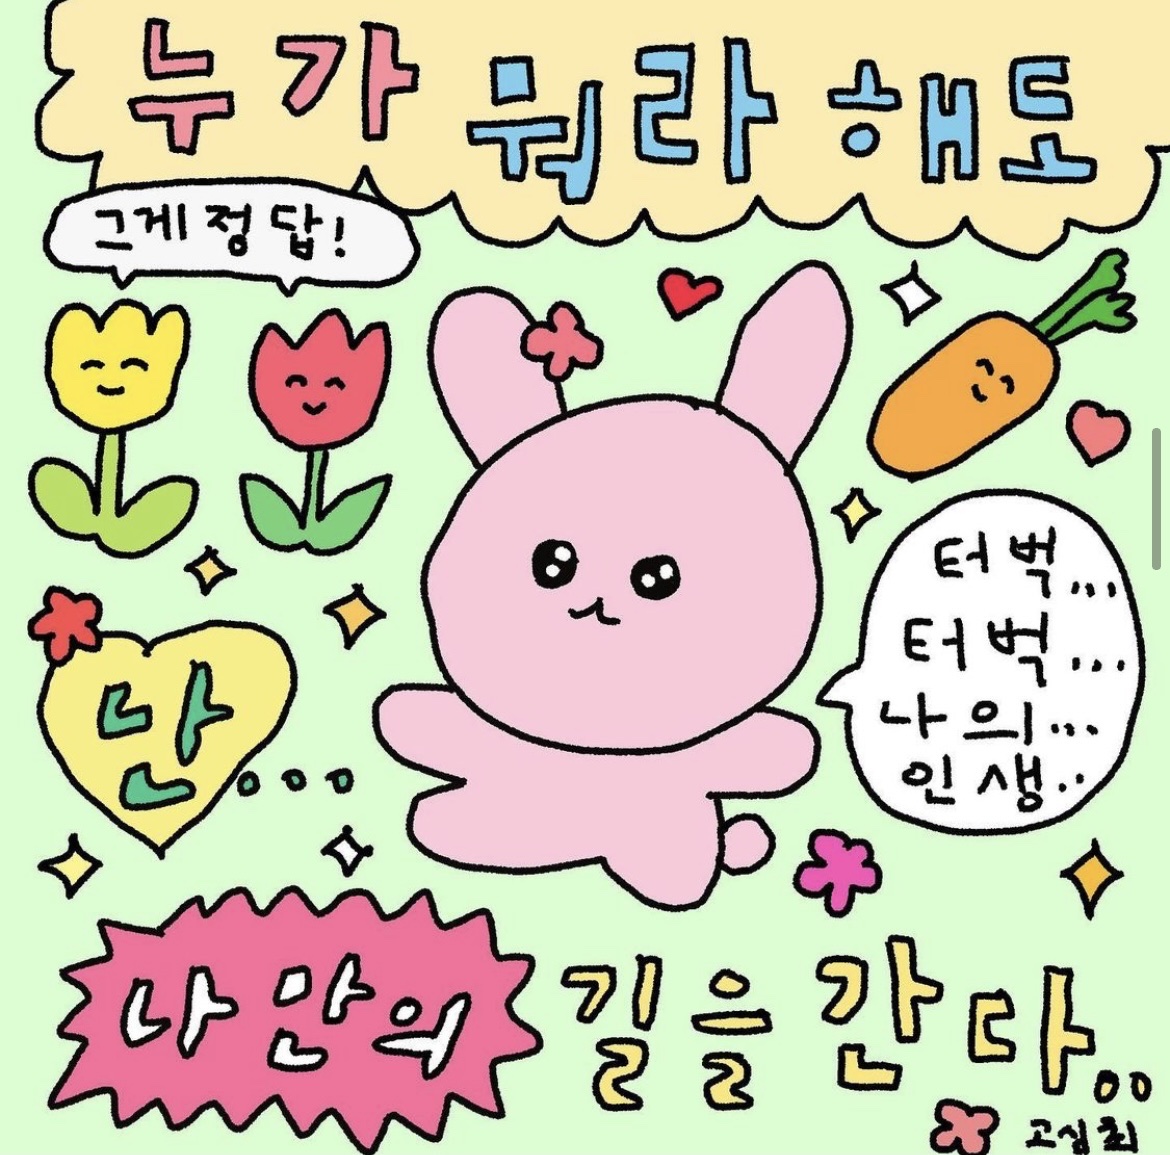 누가 뭐라 해도
그게 정답!
터벅...
터벅...
나의...
인생..
난...
나만의 길을 간다..
고심최